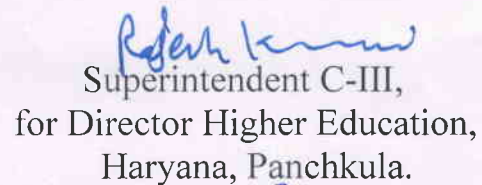 Rajesh Kumar
Superintendent C-III,
for Director Higher Education,
Haryana, Panchkula.